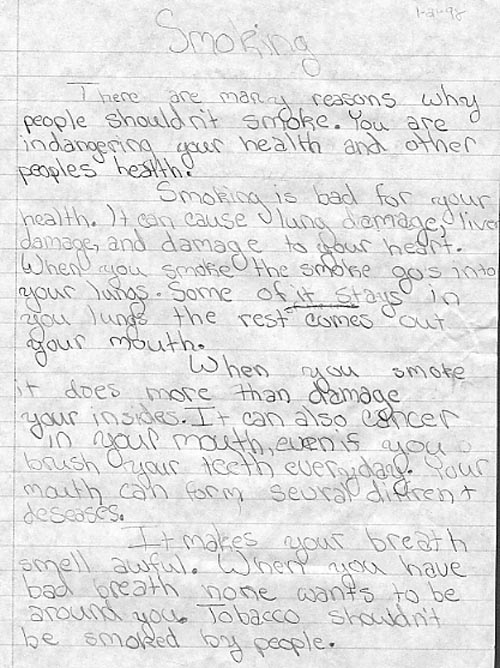 1-21-98
Smoking
There are many reasons why
people shouldn't smoke. You are
indangering your health and other
peoples health.
Smoking is bad for your
health. It can cause lung damage, liver
damage, and damage to your heart.
When you smoke the smoke go's into
your lungs. Some of it stays in
you lungs the rest comes out
your mouth.
When you smoke
it does more than damage
your insides. It can also cancer
in your mouth, even if you
brush your teeth everyday. Your
mouth can form sevral diffrent
deseases.
It makes your breath
smell awful. When you have
bad breath none wants to be
around you. Tobacco shouldn't
be smoked by people.